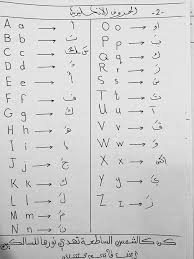 -2- الحروف الانجليزية
A a → أ
B b → ب
C c →
D d → د
E e →
F f → ف
G g →
H h → ه
I i →
J j → ج
K k → ك
L l → ل
M m → م
N n → ن
O o → أو
P p →
Q q →
R r → ر
S s → س
T t → ت
U u →
V v → ڤ
W w → و
X x →
Y y → ي
Z z → ز
كن كالشمس الساطعة تهدي نورها للسالك